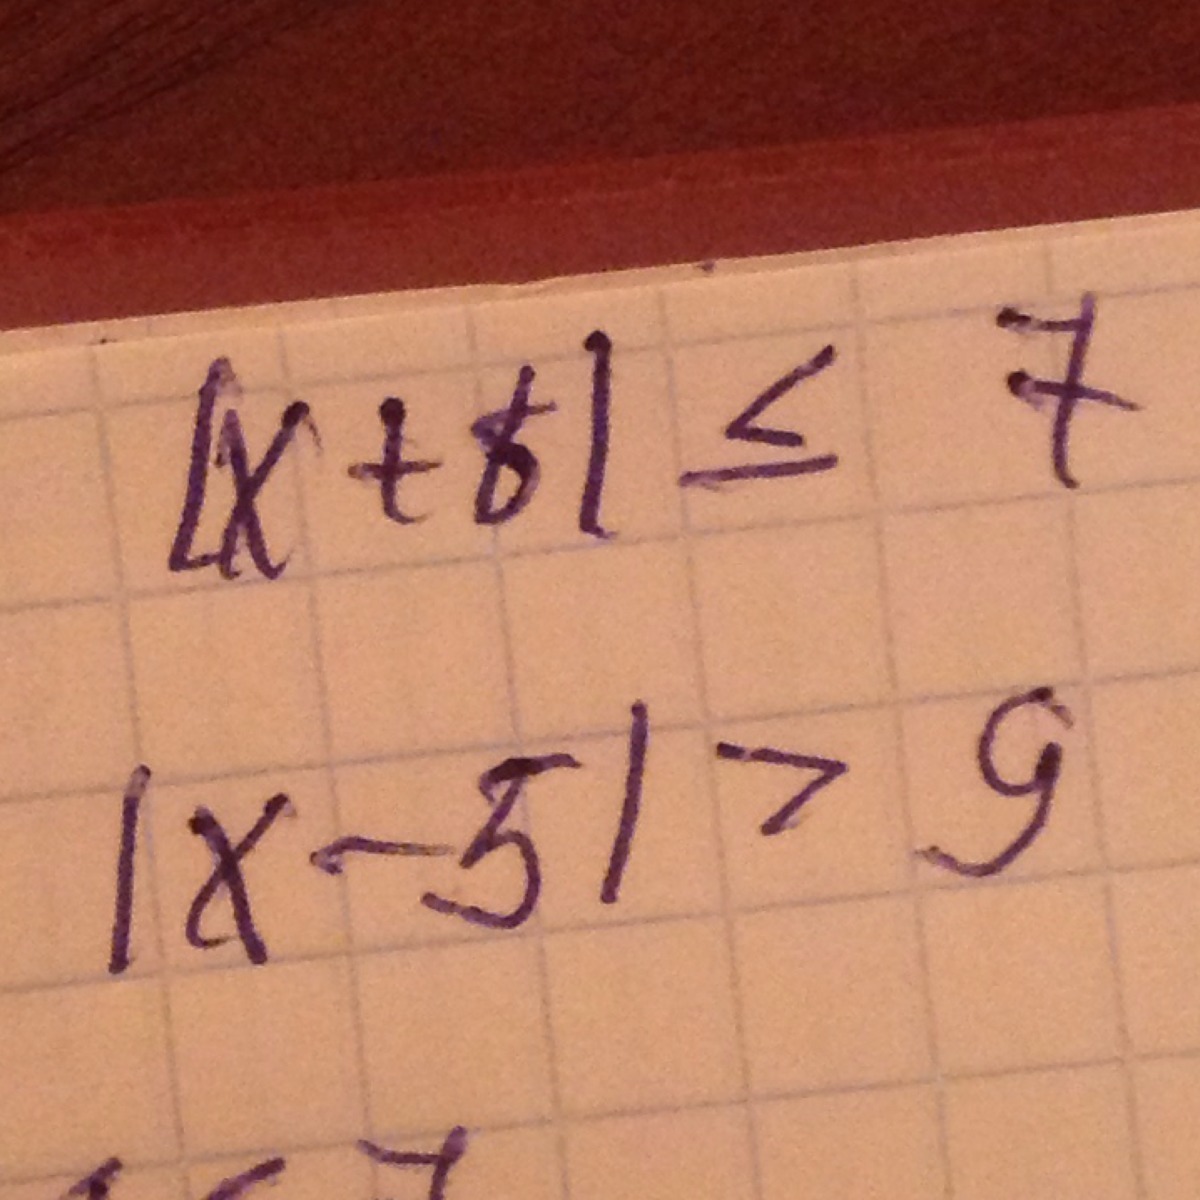 |x + 8| ≤ 7
|x - 5| > 9